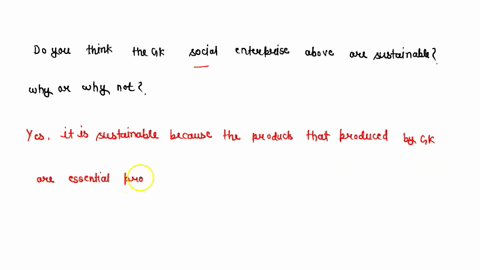 Do you think the GK social enterprise above are sustainable?
why or why not?.
Yes. it is sustainable because the products that produced by GK
are essential pro